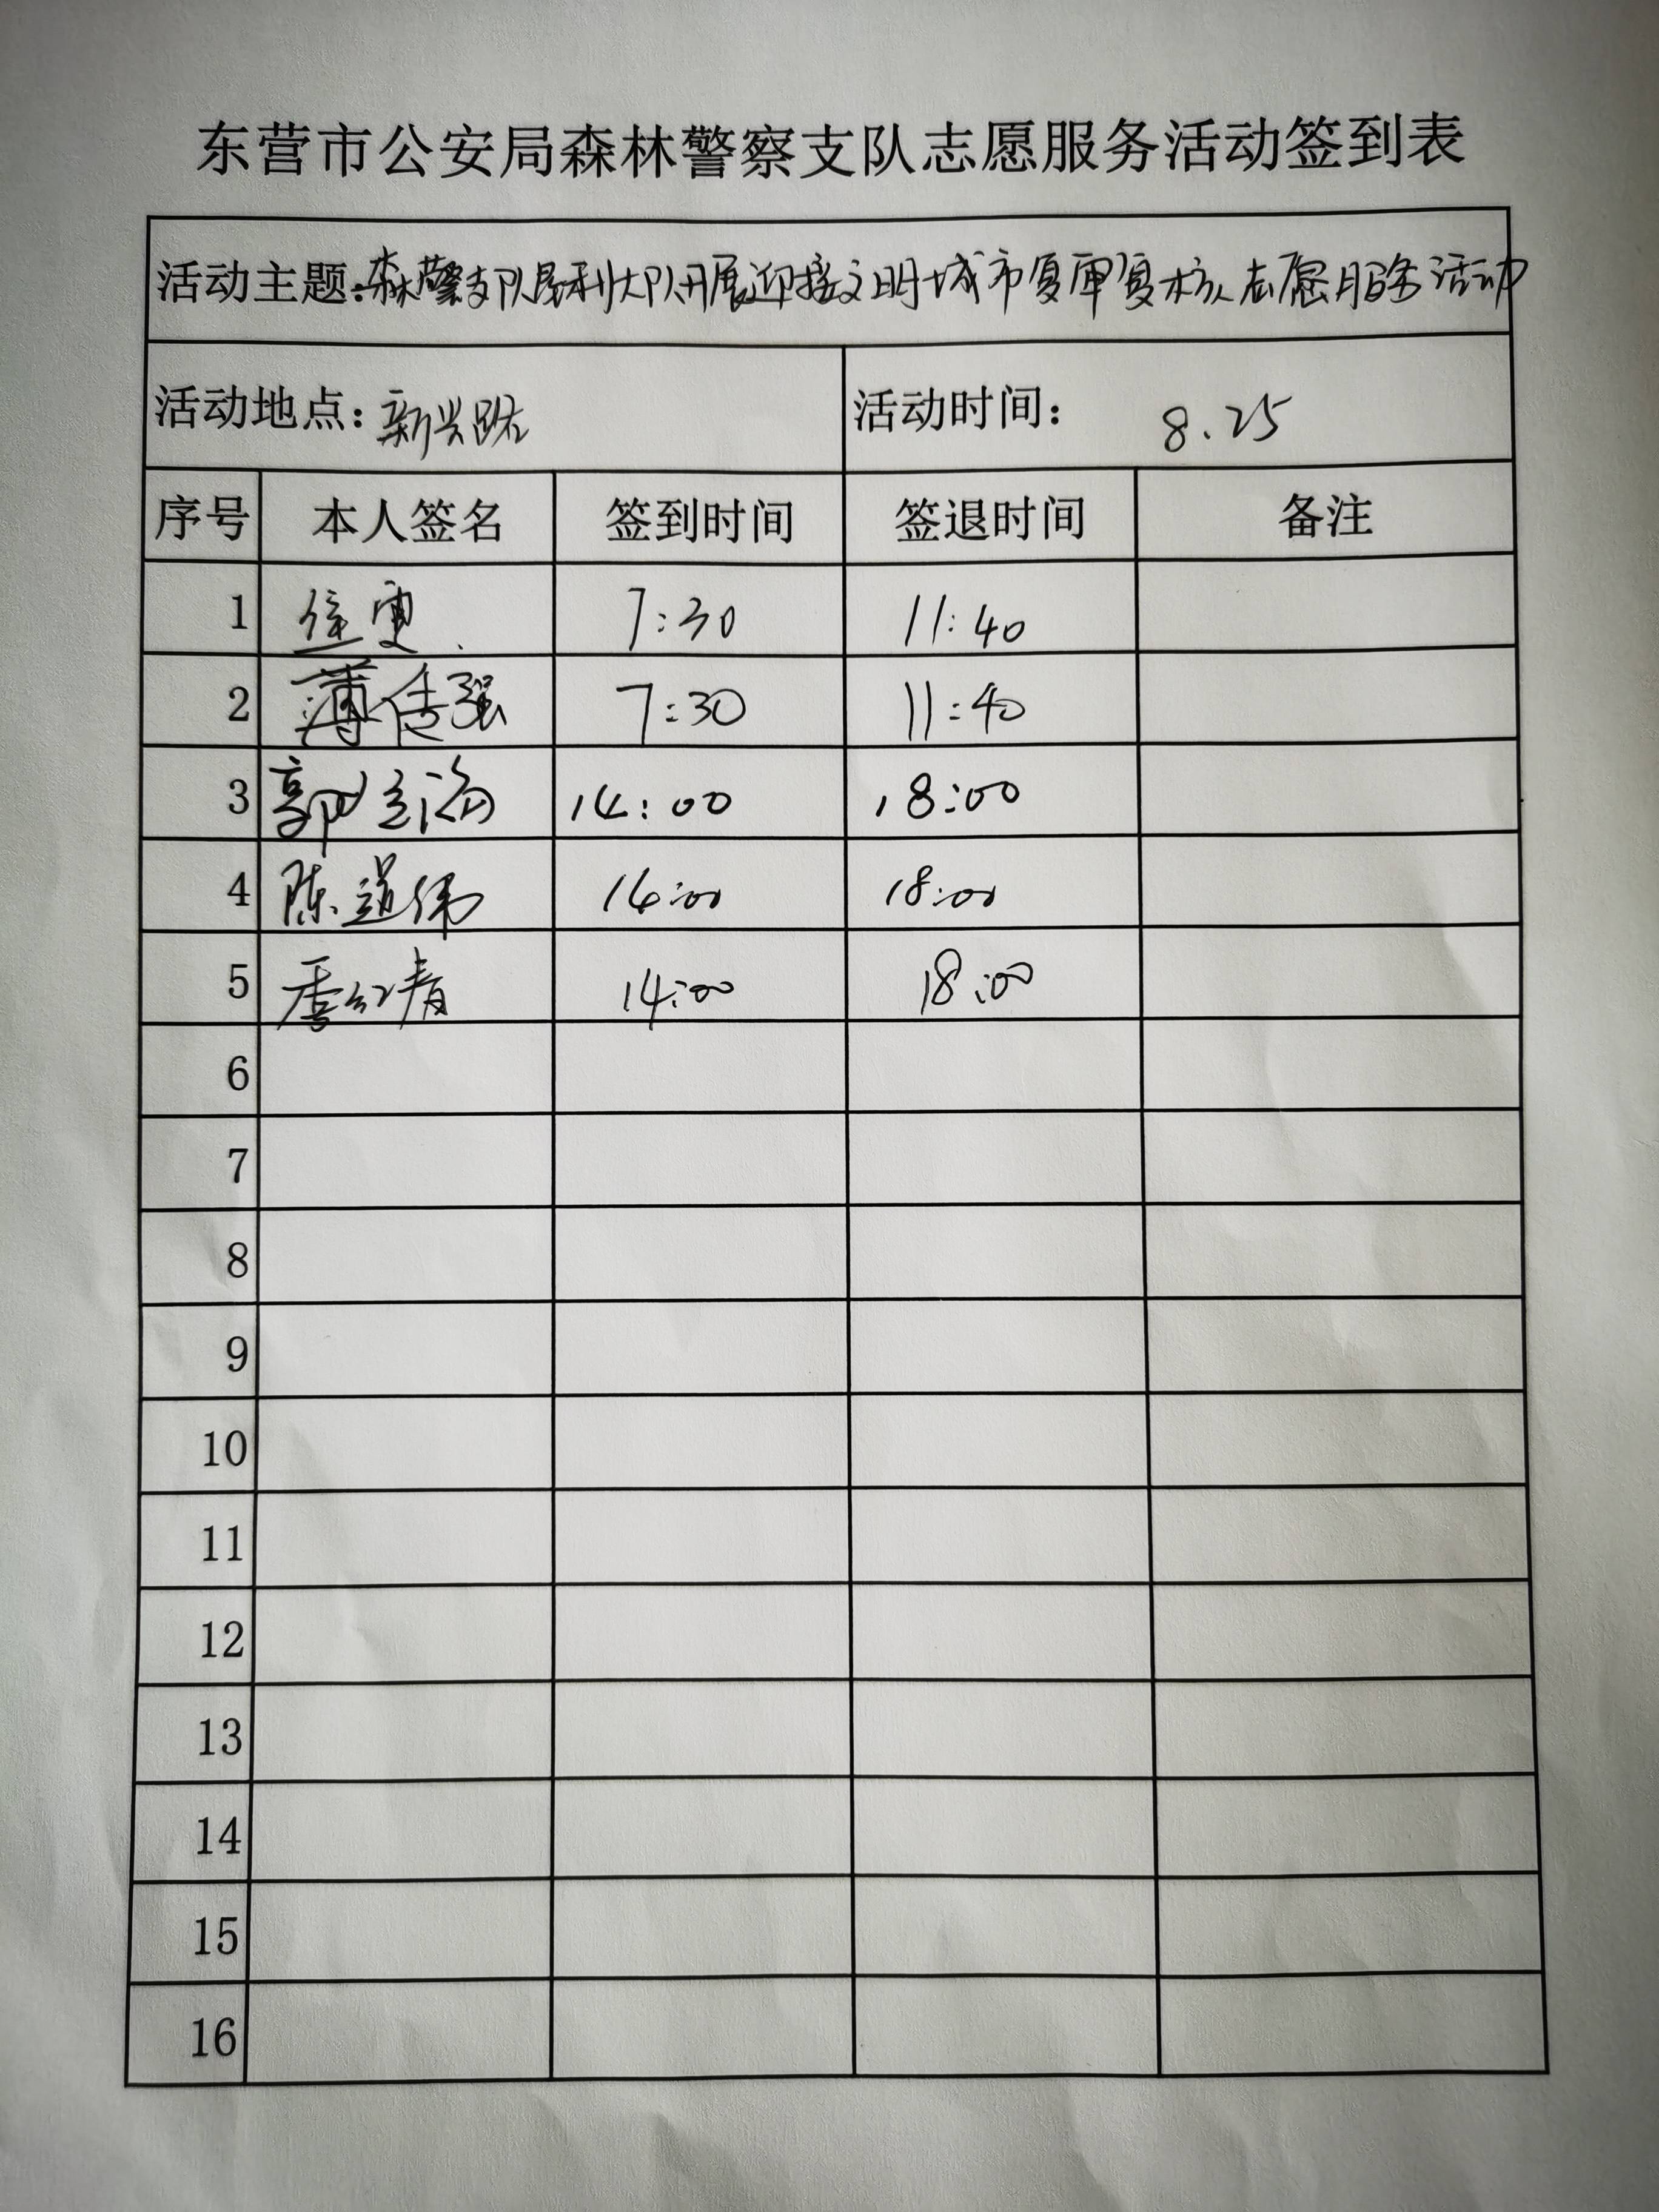 东营市公安局森林警察支队志愿服务活动签到表
活动主题：森警支队垦利大队开展迎接文明城市复审复核志愿服务活动
活动地点：新兴路 活动时间： 8.25
序号 本人签名 签到时间 签退时间 备注
1 7:30 11:40
2 薄传强 7:30 11:40
3 郭立海 14:00 18:00
4 陈道伟 14:00 18:00
5 季红青 14:00 18:00
6
7
8
9
10
11
12
13
14
15
16